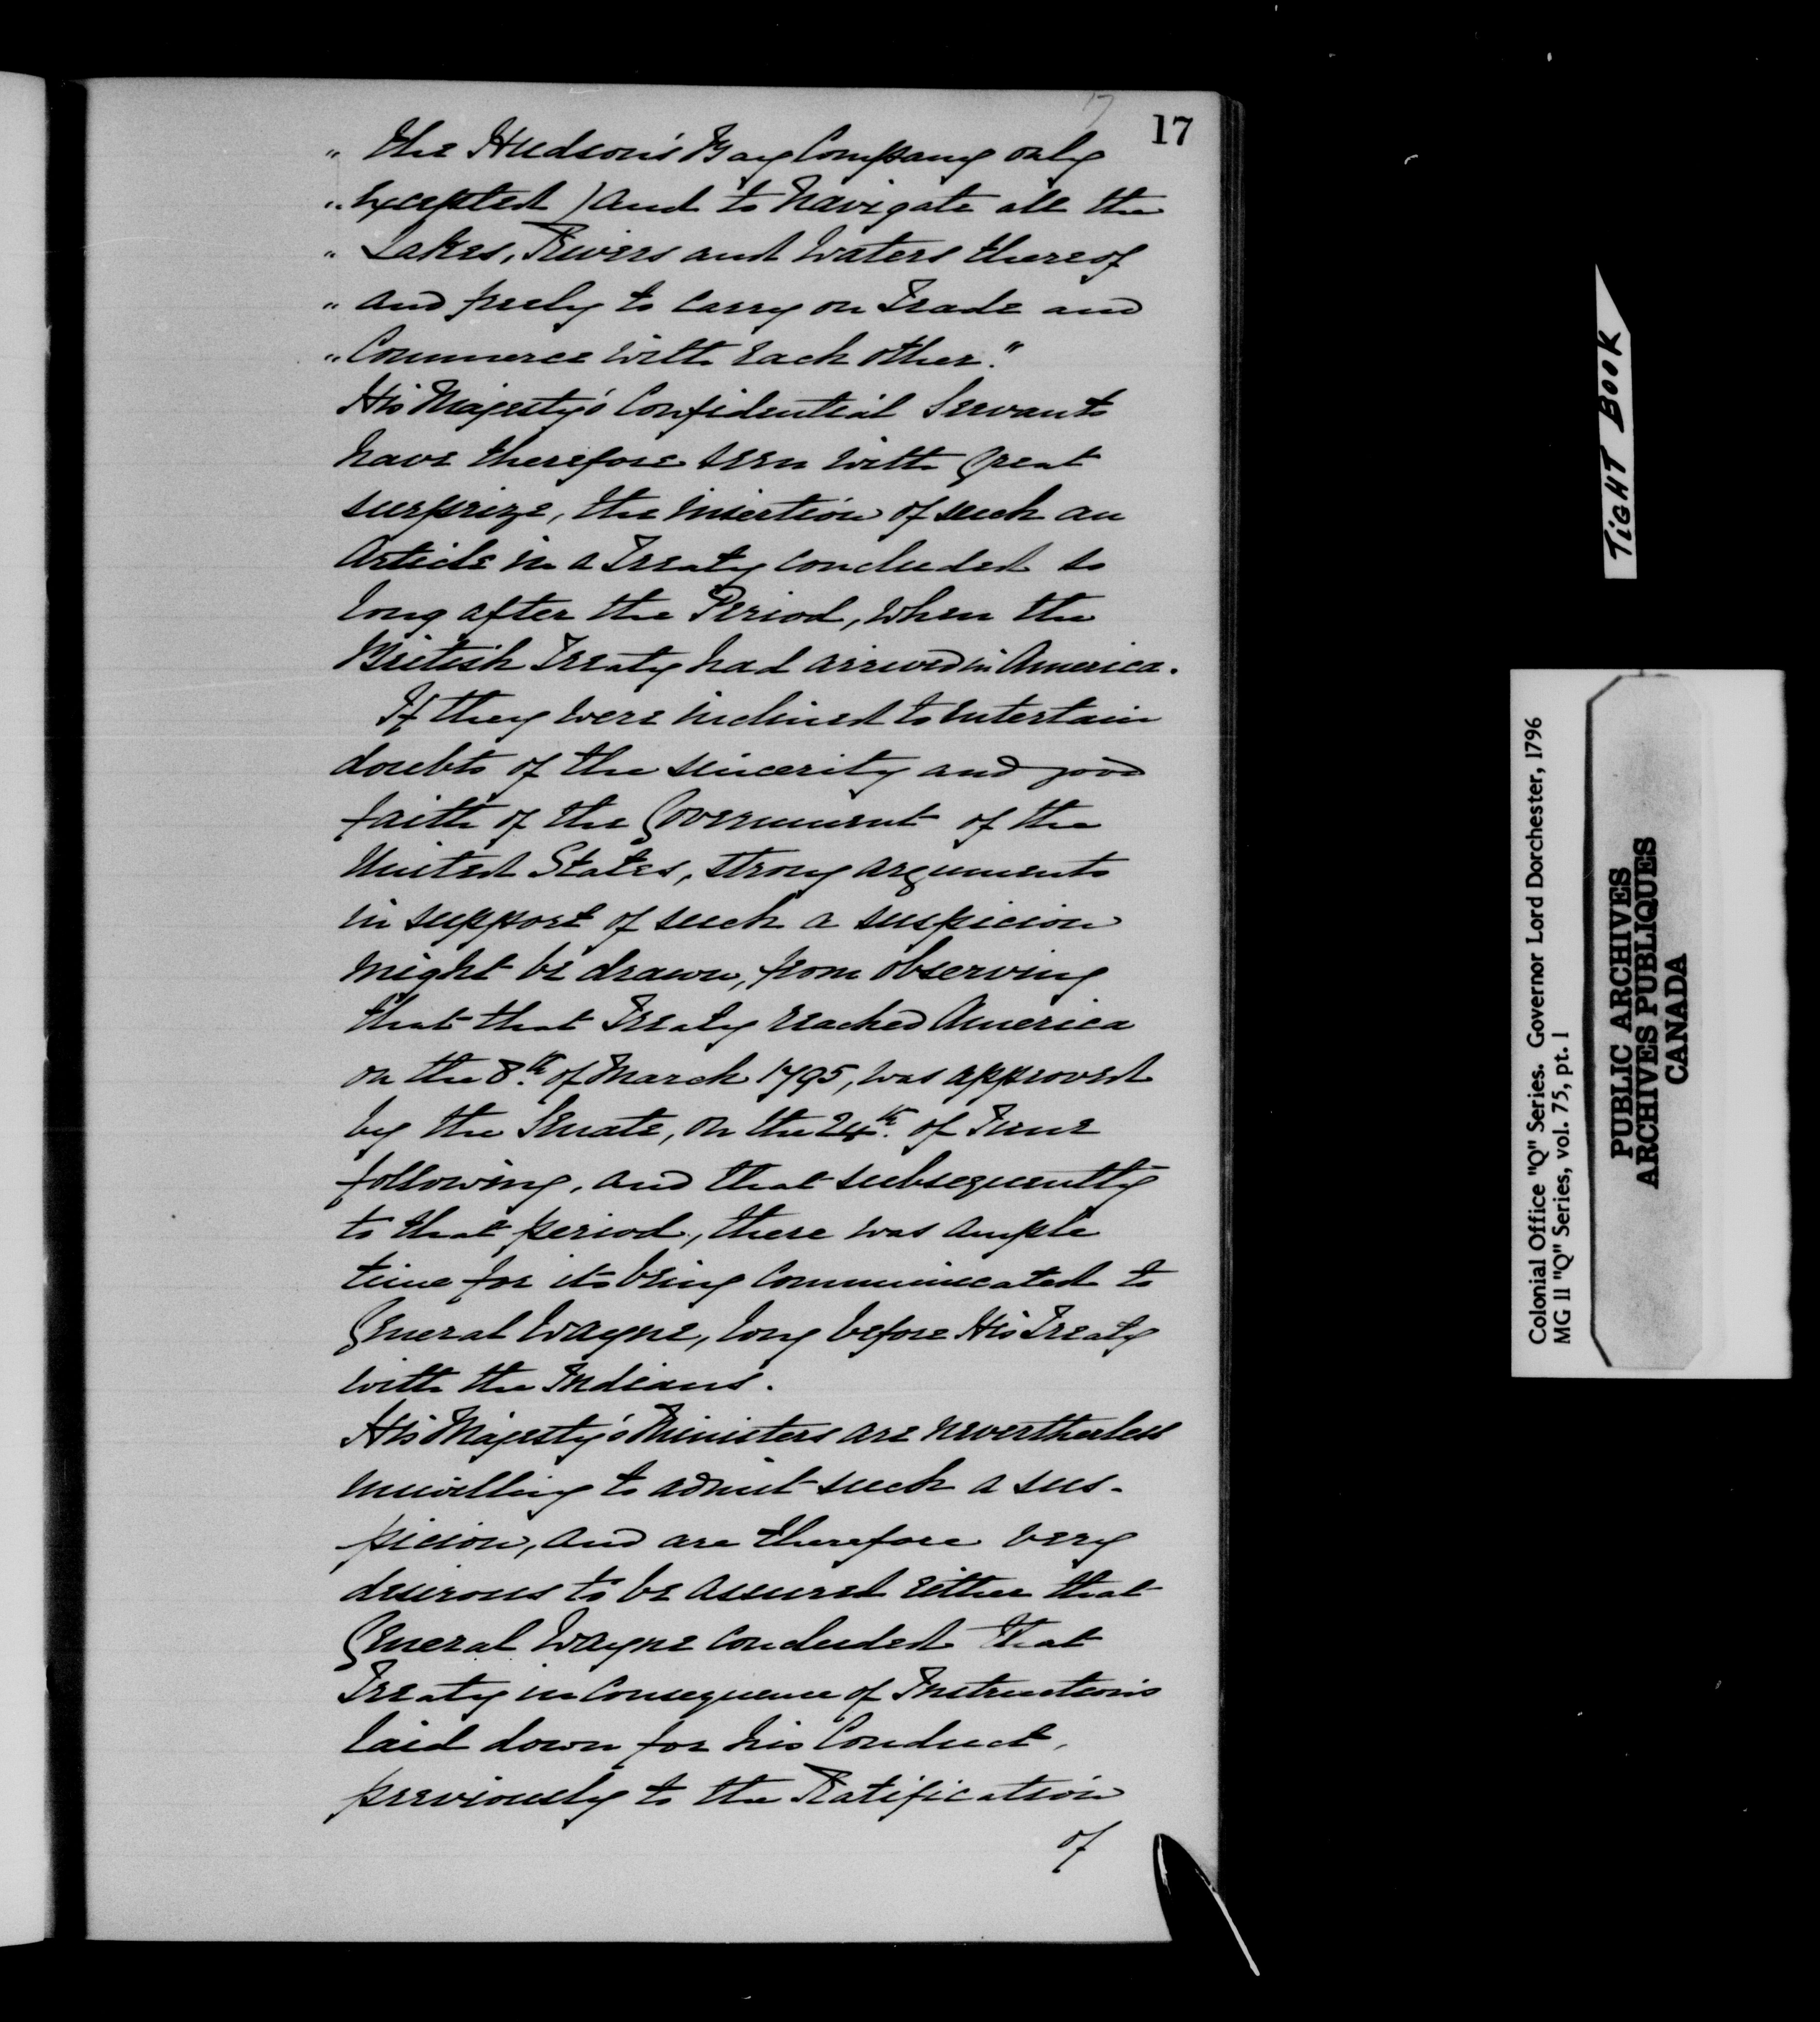 17
17
" the Hudson's Bay Company only
" excepted) and to navigate all the
" Lakes, Rivers and Waters thereof
" and freely to carry on Trade and
" Commerce with each other."
His Majesty's Confidential Servants
have therefore seen with great
surprize, the insertion of such an
Article in a Treaty concluded so
long after the Period, when the
British Treaty had arrived in America.
If they were inclined to entertain
doubts of the sincerity and good
faith of the Government of the
United States, strong arguments
in support of such a suspicion
might be drawn, from observing
that that Treaty reached America
on the 8th. of March 1795, was approved
by the Senate, on the 24th. of June
following, and that subsequently
to that period, there was ample
time for its being communicated to
General Wayne, long before His Treaty
with the Indians.
His Majesty's Ministers are nevertheless
unwilling to admit such a sus-
picion, and are therefore very
desirous to be assured either that
General Wayne concluded that
Treaty in consequence of Instructions
laid down for his Conduct,
previously to the Ratification
of
TIGHT BOOK
Colonial Office "Q" Series. Governor Lord Dorchester, 1796
MG 11 "Q" Series, vol. 75, pt. 1
PUBLIC ARCHIVES
ARCHIVES PUBLIQUES
CANADA